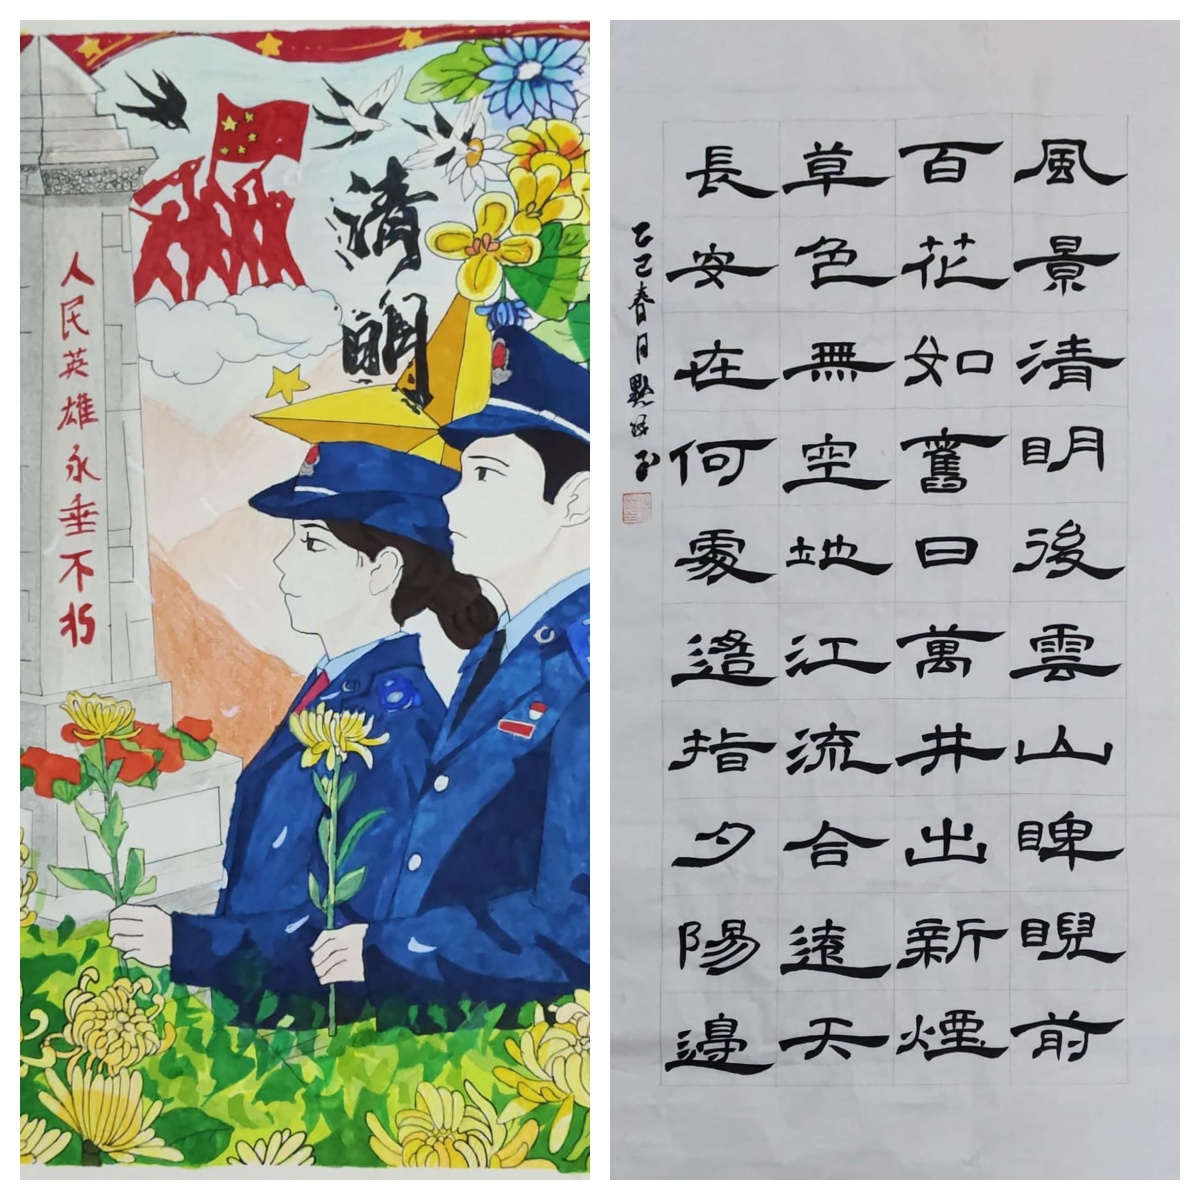 人民英雄永垂不朽
清明
風景清明後雲山睥睨前
百花如舊日萬井出新煙
草色無空地江流合遠天
長安在何處遙指夕陽邊
乙巳春月